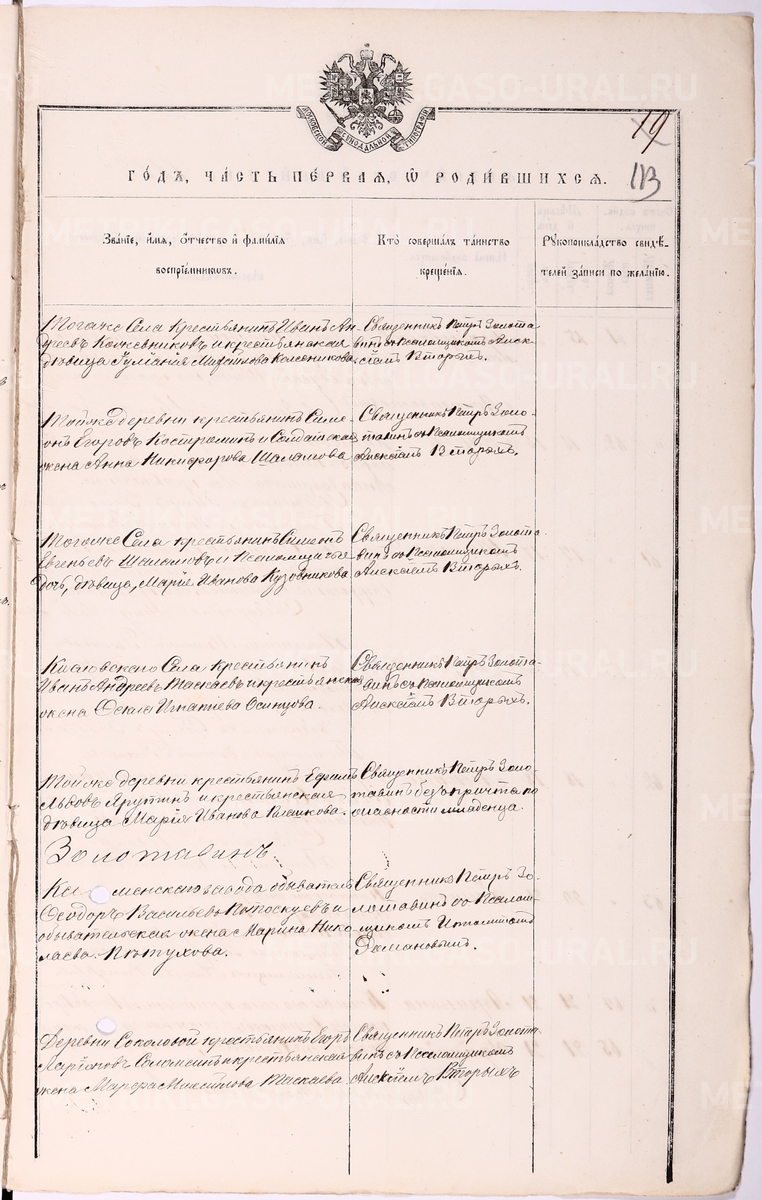 МОСКОВСКОЙ СѴНОДАЛЬНОЙ ТИПОГРАФІИ
19
113
ГОДЪ, ЧАСТЬ ПЕРВАЯ, Ѡ РОДИВШИХСЯ.
Званіе, имя, отчество и фамилія воспріемниковъ.
Кто совершалъ таинство крещенія.
Рукоприкладство свидѣтелей записи по желанію.
Тогоже Села Крестьянинъ Иванъ Ан-
дреевъ Кожевниковъ и крестьянская
дѣвица Гуланія Михаилова
Священникъ Петръ Золота-
винъ съ Псаломщикомъ Алек-
сіемъ Вторыхъ.
Тойже деревни крестьянинъ Симе-
онъ Егоровъ Костроминъ и Солдатская
жена Анна Никифорова Шаламова
Священникъ Петръ Золо-
тавинъ съ Псаломщикомъ
Алексіемъ Вторыхъ.
Тогоже Села крестьянинъ Симеонъ
Евгеньевъ Шаламовъ и Псаломщичья
дочь, дѣвица, Марія Иванова Кузовникова
Священникъ Петръ Золота-
винъ съ Псаломщикомъ
Алексіемъ Вторыхъ.
Кисловскаго Села крестьянинъ
Иванъ Андреевъ Таскаевъ и крестьянская
жена Ѳекла Игнатиева Осинцова.
Священникъ Петръ Золота-
винъ съ Псаломщикомъ
Алексіемъ Вторыхъ.
Тойже деревни крестьянинъ Ефимъ
Львовъ Ярутинъ и крестьянская
дѣвица Марія Иванова Плешкова.
Священникъ Петръ Золо-
тавинъ безъ причта по
опасности младенца.
Золотавинъ
Каменскаго завода обыватель
Ѳеодоръ Васильевъ Потоскуевъ и
обывательская жена Марина Нико-
лаева Пѣтухова.
Священникъ Петръ Зо-
лотавинъ съ Псалом-
щикомъ Иполитомъ
Дамановымъ.
Деревни Соколовой крестьянинъ Егоръ
Маріоновъ Саломеинъ и крестьянская
жена Марѳа Михаилова Таскаева
Священникъ Петръ Золота-
винъ съ Псаломщикомъ
Алексіемъ Вторыхъ